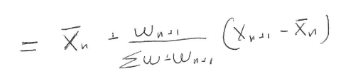 = X̄ₙ + wₙ₊₁ / (Σw + wₙ₊₁) (Xₙ₊₁ - X̄ₙ)